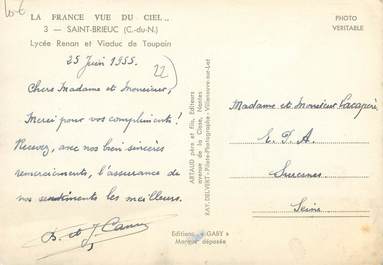 10€
LA FRANCE VUE DU CIEL...
3 — SAINT-BRIEUC (C.-du-N.)
Lycée Renan et Viaduc de Toupain
PHOTO
VERITABLE
25 Juin 1955.
22)
Chers Madame et Monsieur,
Merci pour vos compliments!
Recevez, avec nos bien sincères
remerciements, l'assurance de
nos sentiments les meilleurs.
B. et J.
ARTAUD père et fils, Editeurs
avenue de la Close, Nantes
RAY-DELVERT - Pilote-Photographe - Villeneuve-sur-Lot
Madame et Monsieur
E. P. A.
Suresnes
Seine
Editions "GABY"
Marque déposée